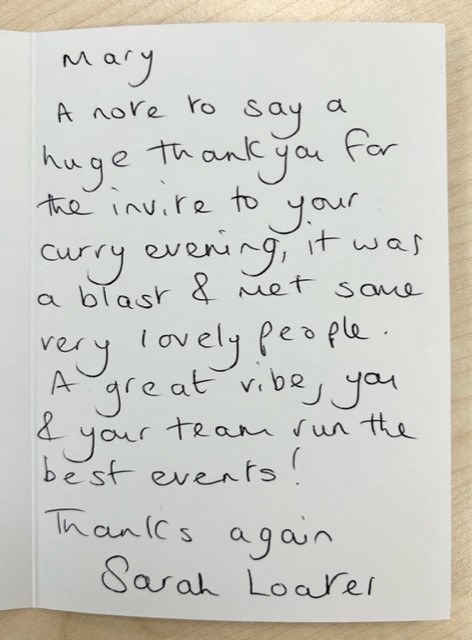 Mary
A note to say a
huge thank you for
the invite to your
curry evening, it was
a blast & met some
very lovely people.
A great vibe, you
& your team run the
best events!
Thanks again
Sarah